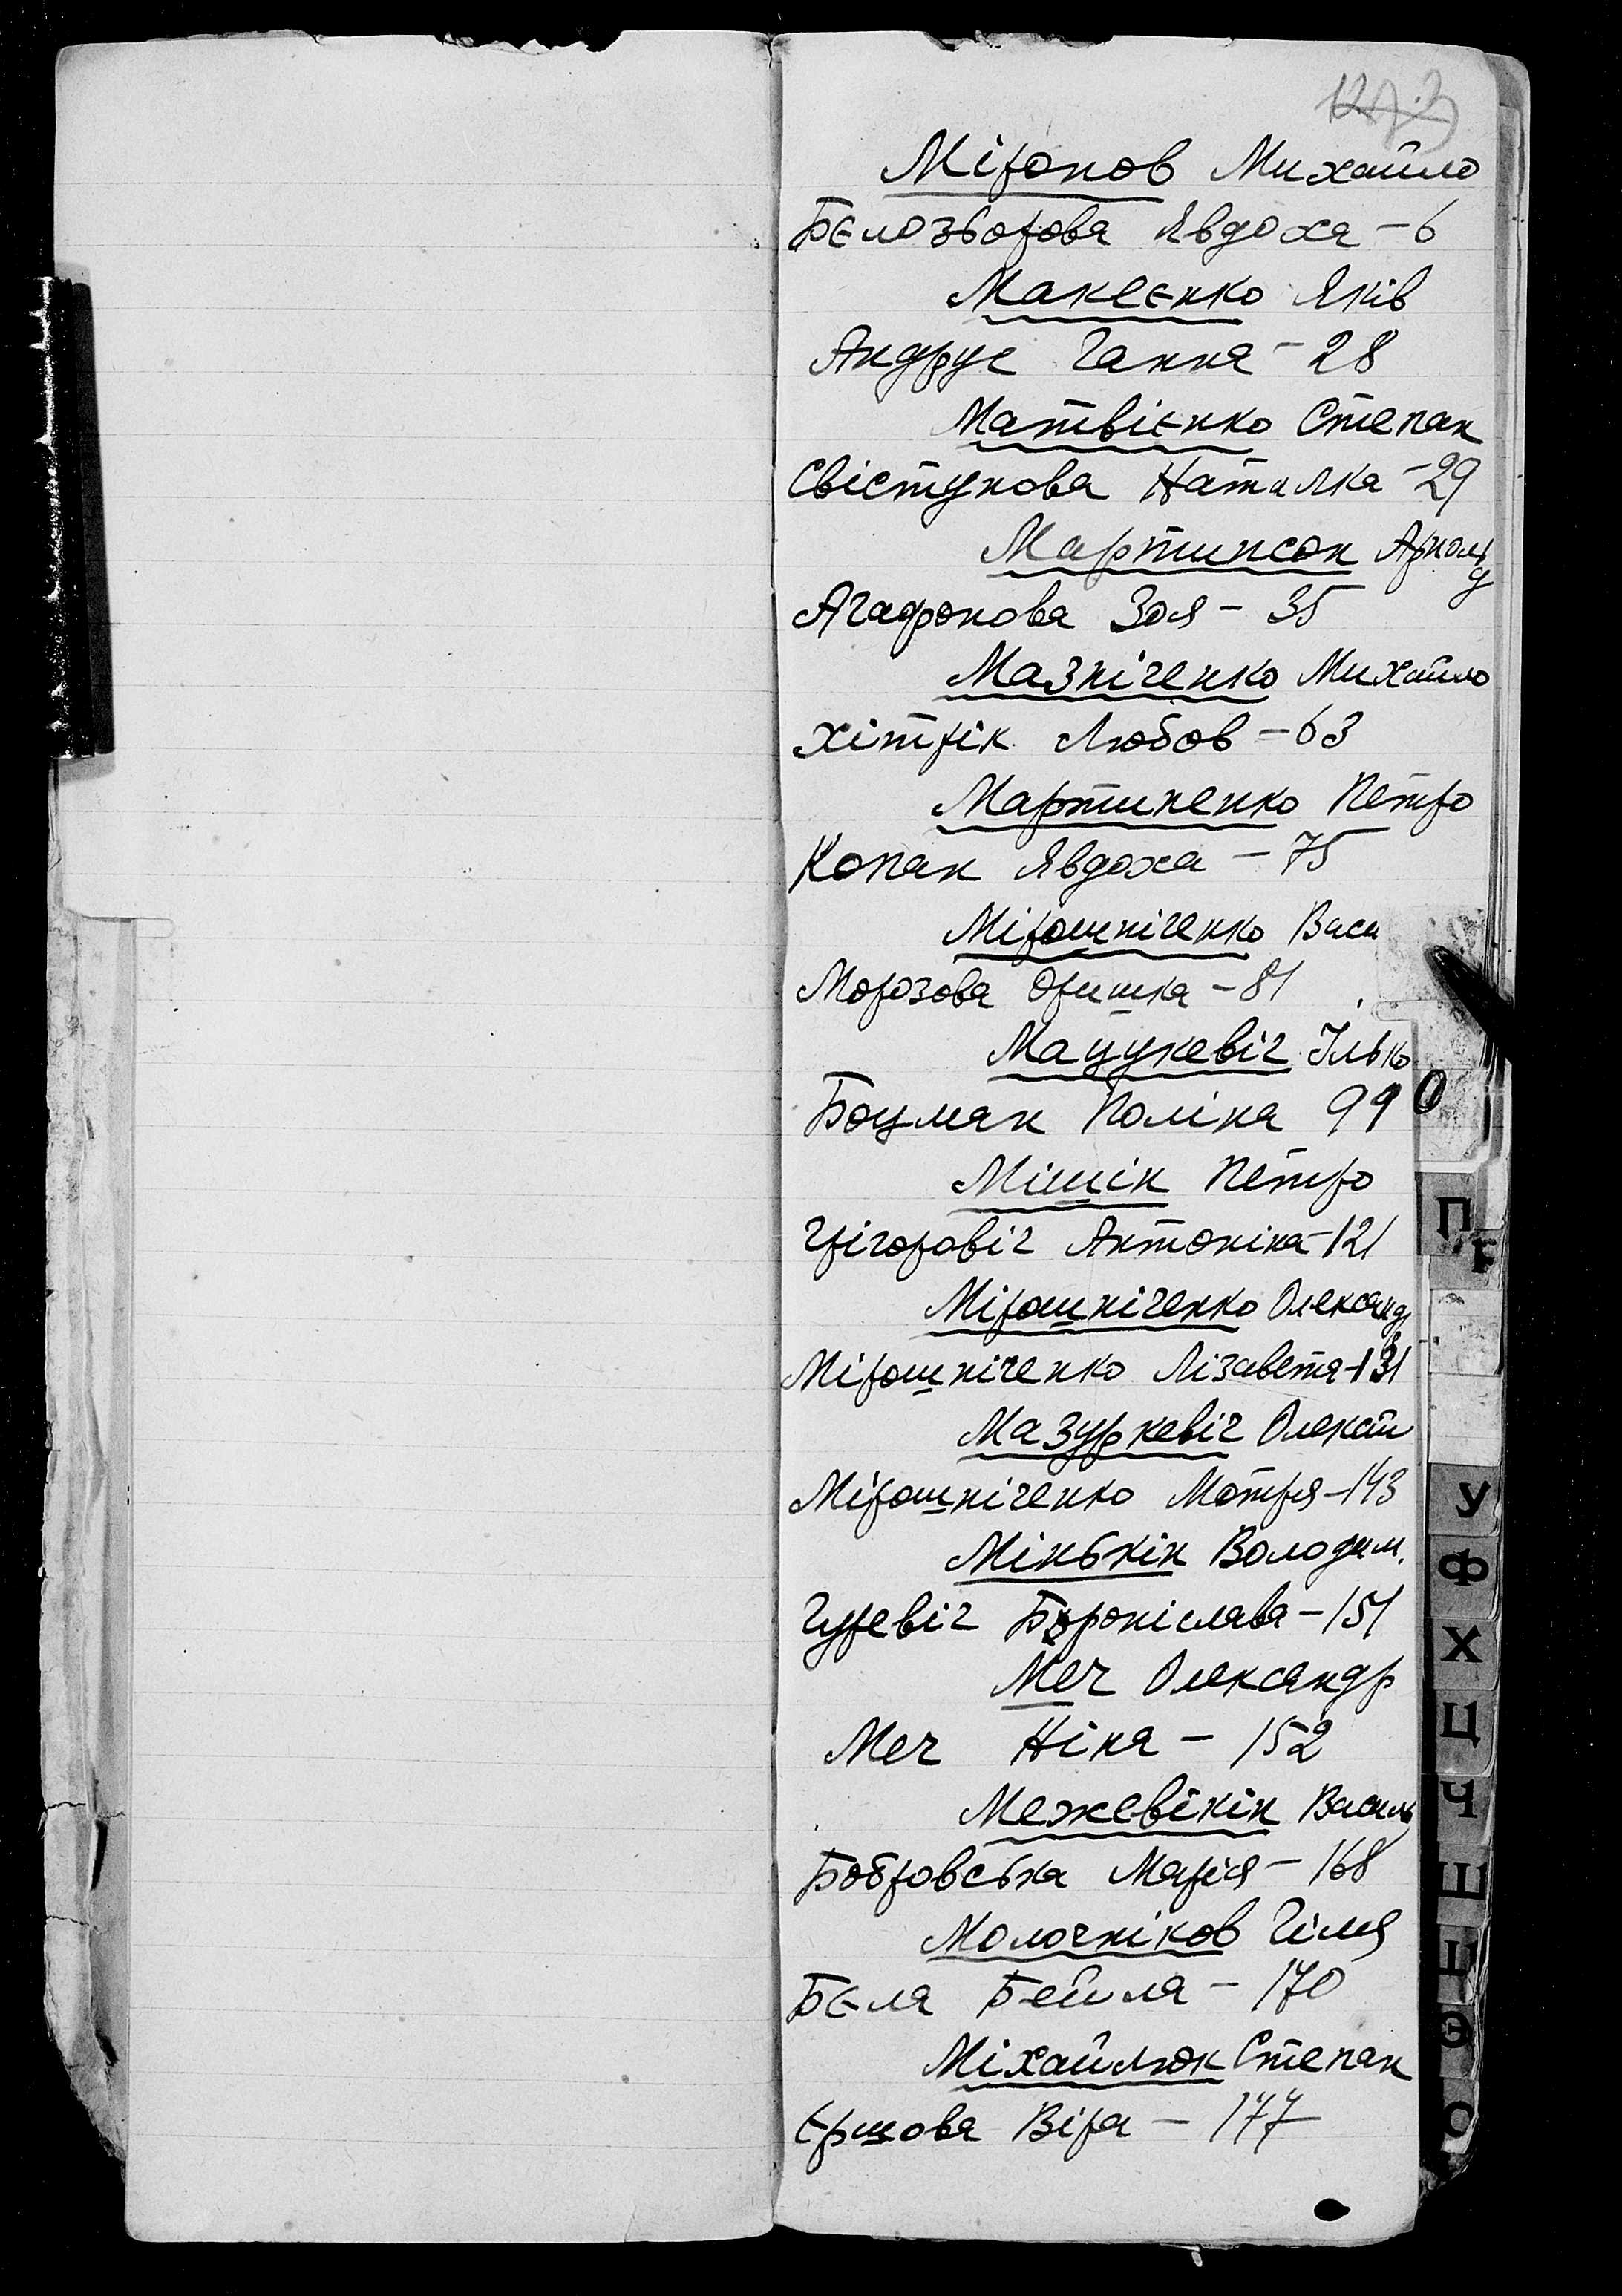 Міронов Михайло
Бєлозьорова Явдоха - 6
Макеєнко Яків
Андрус Ганна - 28
Матвієнко Степан
Свістунова Наталка - 29
Мартинсон Арнольд
Агафонова Зоя - 35
Мазніченко Михайло
Хітрік Любов - 63
Мартиненко Петро
Копан Явдоха - 75
Мірошніченко Васи
Морозова Оришка - 81
Мацукевіч Ілько
Боцман Поліна 99
О
Мішін Петро
П
Грігоровіч Антоніна - 121
Мірошніченко Олександр
Мірошніченко Лізавета - 131
Мазуркевіч Олексій
Мірошніченко Мотря - 143
У
Мінькін Володим.
Ф
Гуревіч Броніслава - 151
Х
Меч Олександр
Меч Ніна - 152
Ц
Межевікін Василь
Ч
Бобровська Марія - 168
Ш
Молочніков Гіля
Щ
Бєла Бейла - 170
Э
Міхайлюк Степан
Єршова Віра - 177